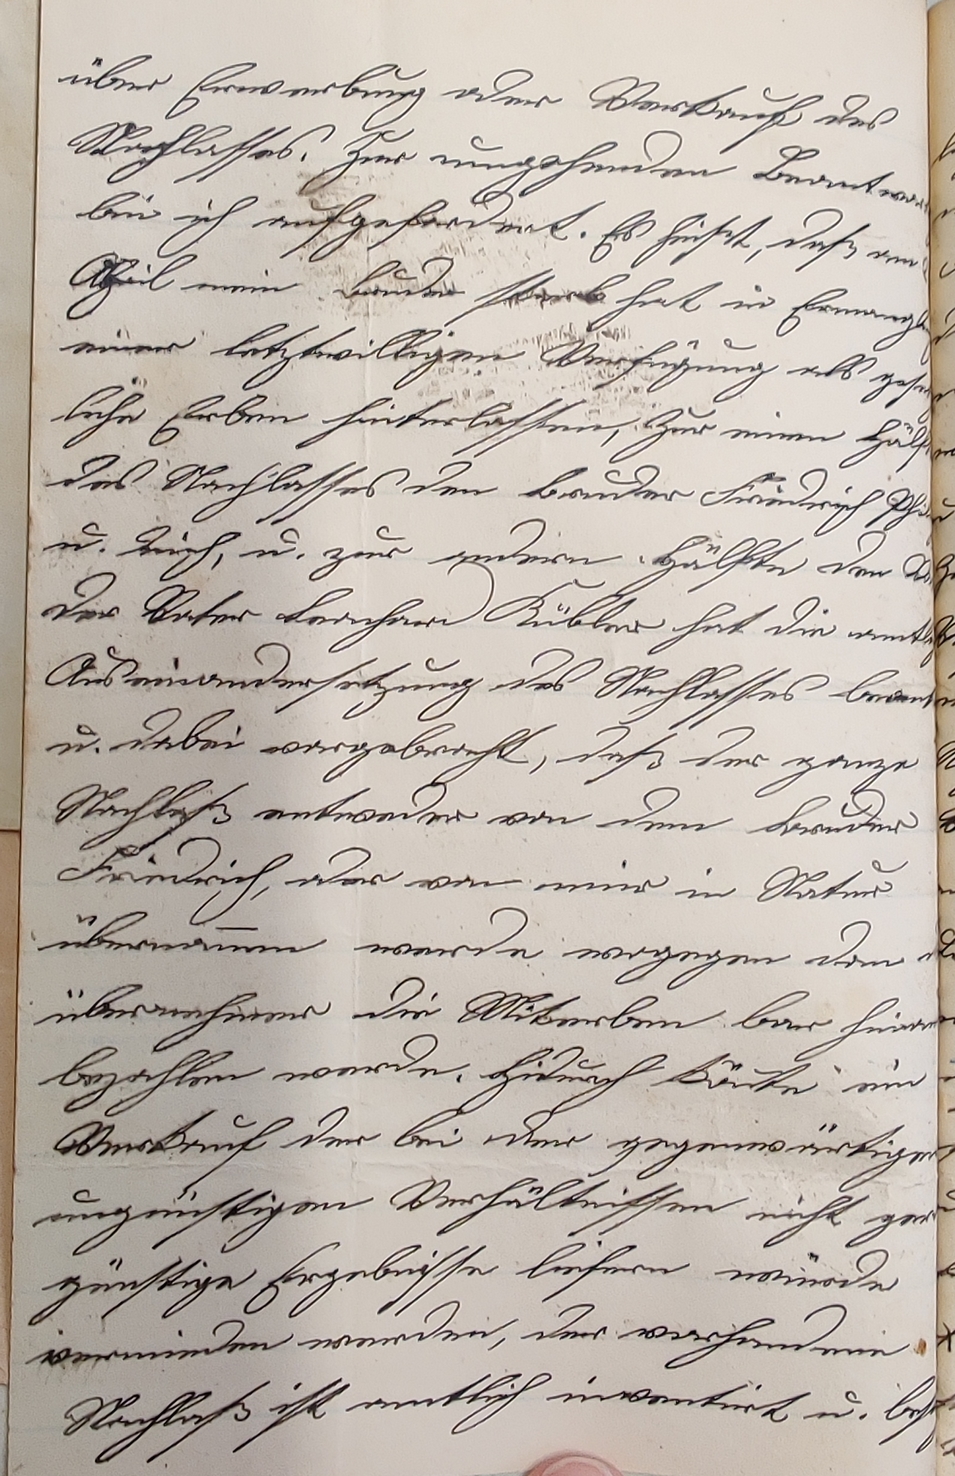 über Erwerbung oder Verkauf des
Nachlasses. Zur umgehenden Beantwor
bin ich aufgefordert. Es heißt, daß am
April mein Bruder starb hat in Ermangl
einer letztwilligen Verfügung als gese
liche Erben hinterlassen, Zur einen Hälf
des Nachlasses den Bruder Friedrich Phi
u. mich, u. zur andern Hälfte den
der Vater Leonhard Kübler hat die amtl
Auseinandersetzung des Nachlasses bean
u. dabei vorgebracht, daß der ganze
Nachlaß entweder von dem Bruder
Friedrich, oder von mir in Natur
übernom̄en werde wogegen dan
übernehmer die Miterben bar hinaus
bezahlen werde. Hidurch könte ein
Verkauf der bei der gegenwärtigen
ungünstigen Verhältnissen nicht gar
günstige Ergebnisse liefern würde
vermieden werden, der vorhandene
Nachlaß ist amtlich inventirt u.